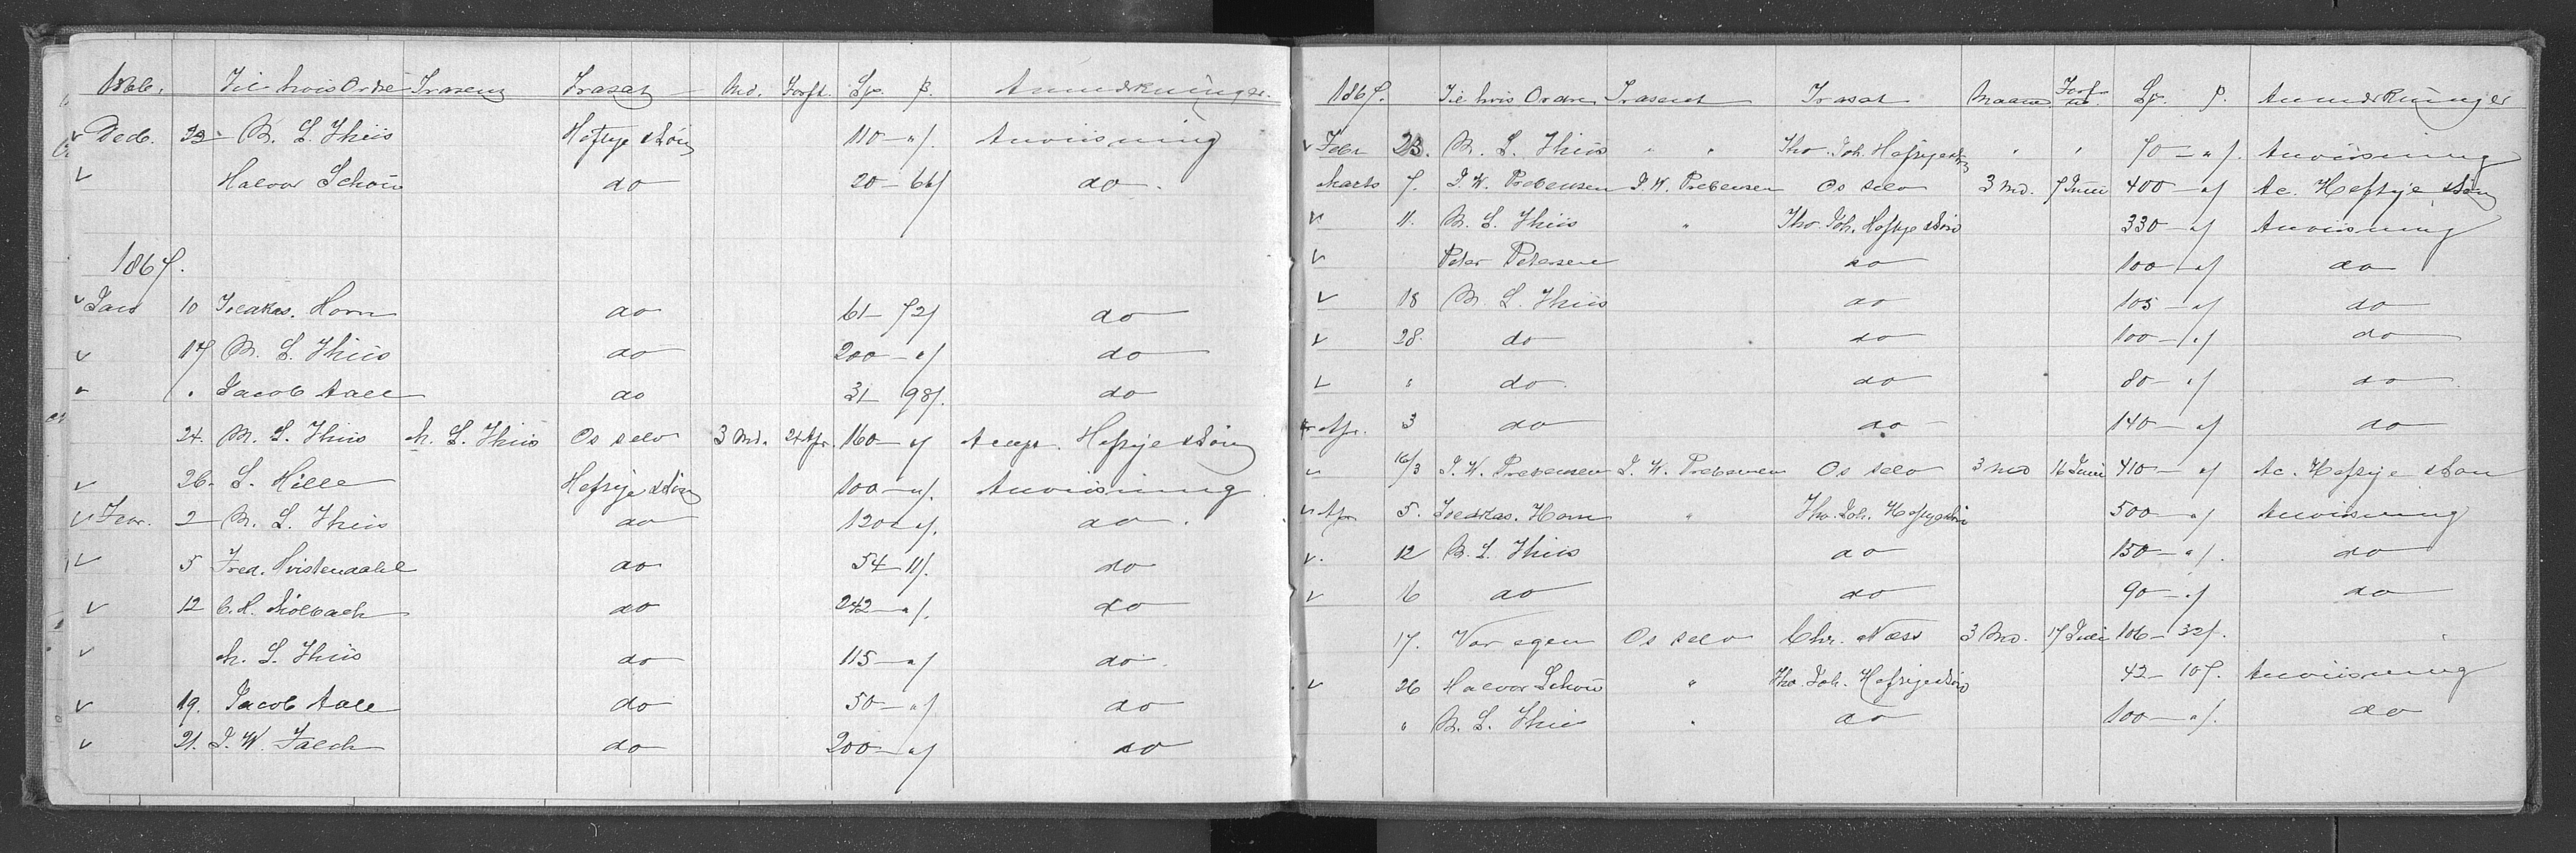 1866. Til hvis Ordre Trasent Trasat Md. Forft. Sp. β. Anmærkninger.
Decb. 22 M. L. Thiis Heftye & Søn 110 - "/ Anviisning
Halvor Schou do 20 - 66/ do.
1867.
Jan 10 Toldkas. Horn do 61 - 72/ do
17 M. L. Thiis do 200 - "/ do
" Jacob Aall do 31 - 98/. do
24. M. L. Thiis M. L. Thiis Os selv 3 Md. 24 Apr. 160 - "/ Accept. Heftye & Søn
26. L. Hille Heftye & Søn 100 - "/. Anviisning
Febr. 2 M. L. Thiis do 120 - "/. do.
5 Fred. Hvistendahl do 54 - 11/. do
12 C. H. Molbach do 242 - "/. do
M. L. Thiis do 115 - "/ do.
19. Jacob Aall do 50 - "/ do
21. J. W. Falch do 200 - "/ do
1867. Til hvis Ordre Trasent Trasat Maaned Forf Sp. β. Anmærkninger
Febr 23. M. L. Thiis " " Tho. Joh. Heftye & Søn " " 70 - "/. Anviisning
Marts 7. J. W. Prebensen J. W. Prebensen Os selv 3 Md. 7 Juni 400 - "/ Ac. Heftye & Søn
11. M. L. Thiis " Tho. Joh. Heftye & Søn 330 - "/ Anviisning
Peter Petersen do 100 - "/ do
18 M. L. Thiis do 105 - "/ do
28. do do 100 - "/ do
" do. do 80 - "/ do.
Apr. 3 do do 140 - "/ do
16/3 J. W. Prebensen J. W. Prebensen Os selv 3 Md 16 Juni 410 - "/ Ac. Heftye & Søn
Apr. 5. Toldkas. Horn " Tho. Joh. Heftye & Søn 500 - "/ Anviisning
12 M. L. Thiis do 150 - "/. do
16 do do 90 - "/ do
17. Vor egen Os selv Chr. Næss 3 Md. 17 Juli 106 - 32/.
26 Halvor Schou " Tho. Joh. Heftye & Søn 42 - 107. Anviisning
" M. L. Thiis " do 100 - "/. do